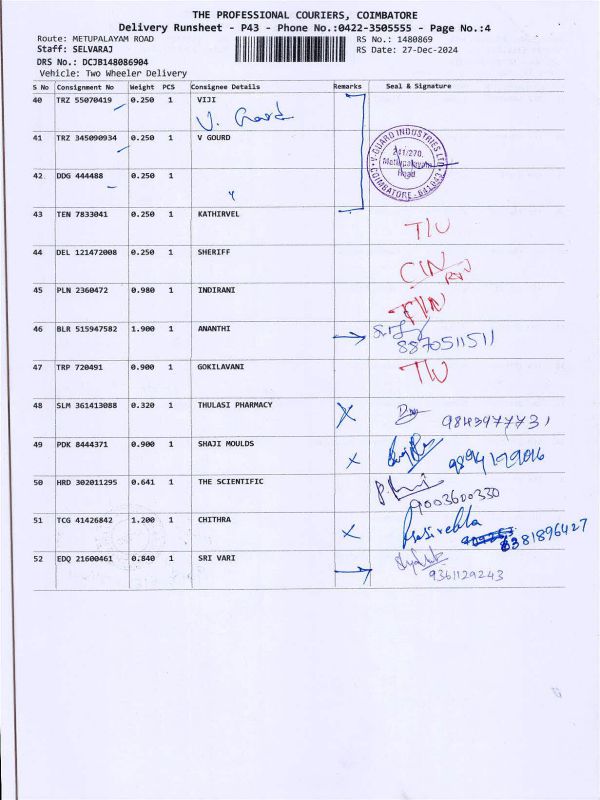 THE PROFESSIONAL COURIERS, COIMBATORE
Delivery Runsheet - P43 - Phone No.:0422-3505555 - Page No.:4
Route: METUPALAYAM ROAD RS No.: 1480869
Staff: SELVARAJ RS Date: 27-Dec-2024
DRS No.: DCJB148086904
Vehicle: Two Wheeler Delivery
S No Consignment No Weight PCS Consignee Details Remarks Seal & Signature
40 TRZ 55070419 0.250 1 VIJI
V. Guard
41 TRZ 345090934 0.250 1 V GOURD
V-GUARD INDUSTRIES LTD
241/270,
Mettupalayam
Road
COIMBATORE - 641 043
42 DDG 444488 0.250 1
43 TEN 7833041 0.250 1 KATHIRVEL
44 DEL 121472008 0.250 1 SHERIFF
45 PLN 2360472 0.980 1 INDIRANI
46 BLR 515947582 1.900 1 ANANTHI
8870511511
47 TRP 720491 0.900 1 GOKILAVANI
48 SLM 361413088 0.320 1 THULASI PHARMACY X
9843977731
49 PDK 8444371 0.900 1 SHAJI MOULDS X
50 HRD 302011295 0.641 1 THE SCIENTIFIC
9003600330
51 TCG 41426842 1.200 1 CHITHRA X
6381896427
52 EDQ 21600461 0.840 1 SRI VARI
9361129243